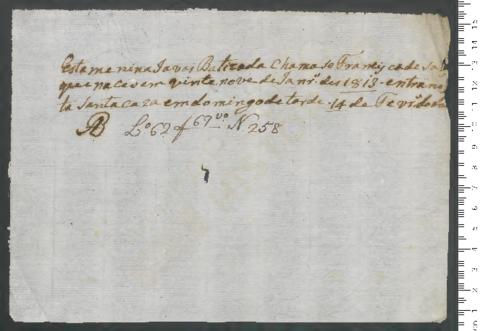 Esta menina Ja vai Batizada Chama so Francisca de Sa
que naceo em vinte nove de Janr.º de 1813 entra ne
ta Santa Caza em domingo de tarde 14 de Fev
AB L.º 62 f 67 v.º N 258